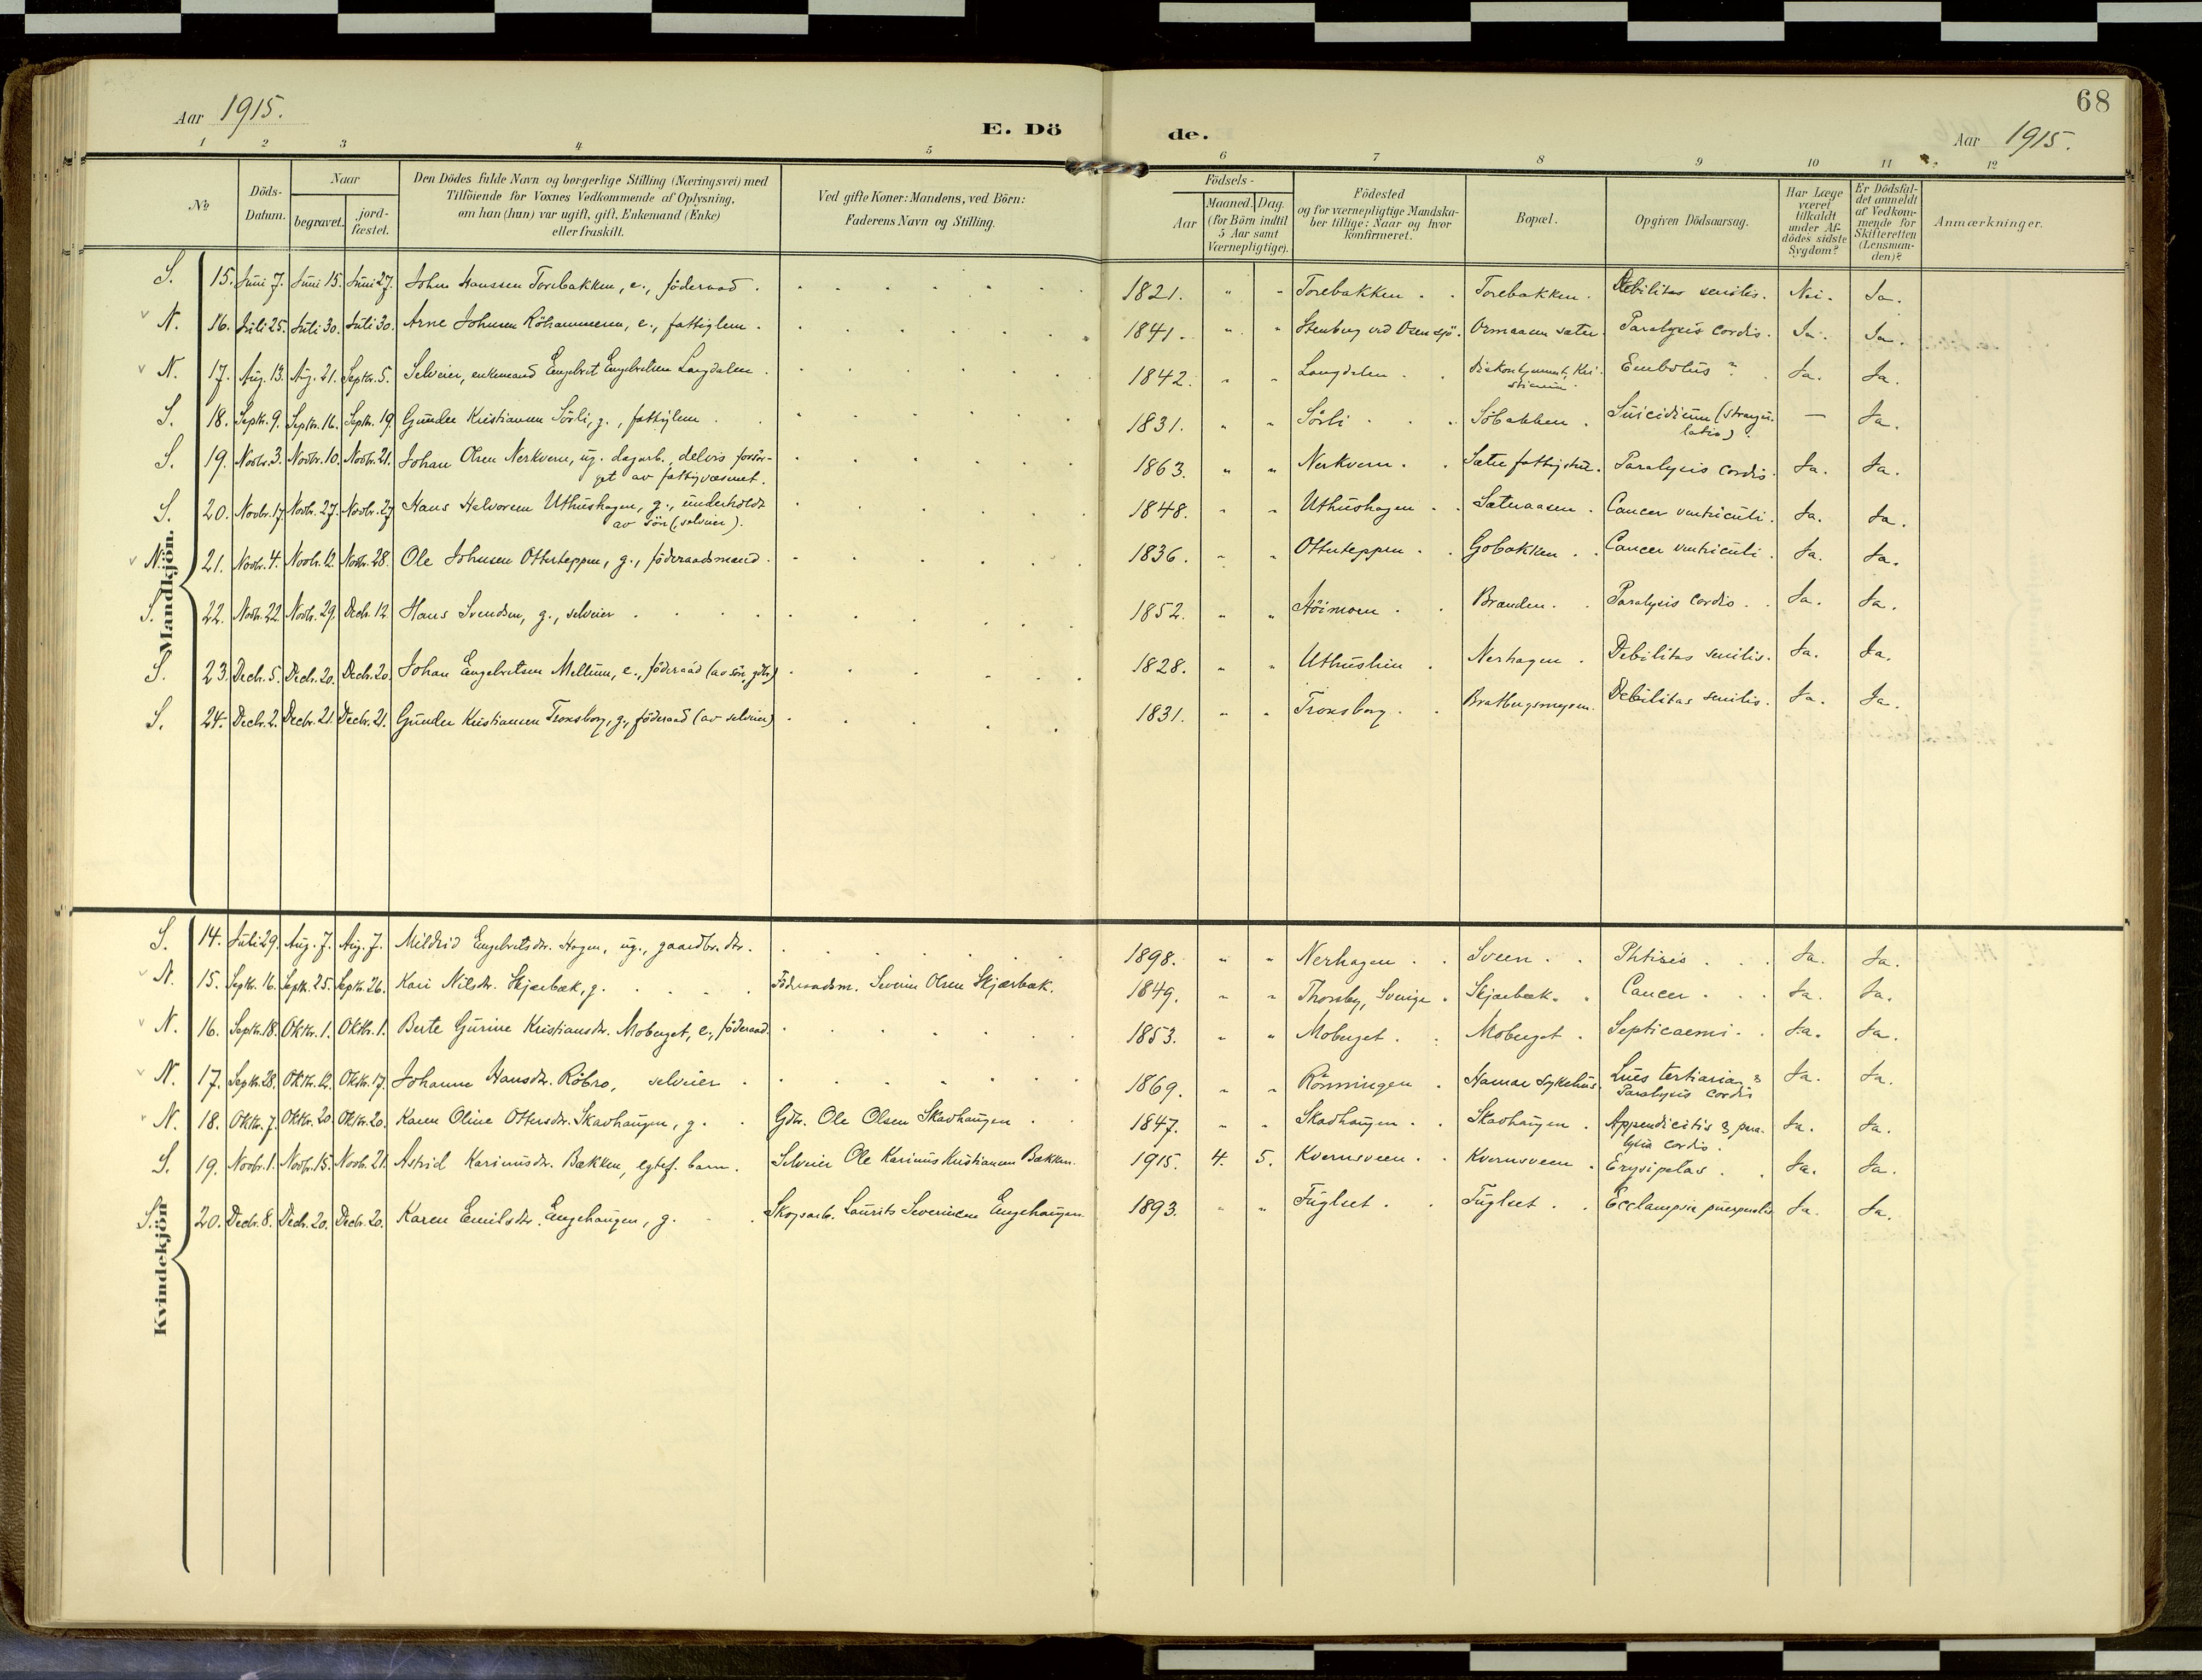 68
Aar 1915.
E. Dö de.
Aar 1915.
1 2 3 4 5 6 7 8 9 10 11 12
No
Döds-Datum.
Naar
begravet.
jord-fæstet.
Den Dödes fulde Navn og borgerlige Stilling (Næringsvei) med
Tilföiende for Voxnes Vedkommende af Oplysning,
om han (hun) var ugift, gift, Enkemand (Enke)
eller fraskilt.
Ved gifte Koner: Mandens, ved Börn:
Faderens Navn og Stilling.
Födsels-
Aar
Maaned. Dag.
(for Börn indtil
5 Aar samt
Værnepligtige).
Födested
og for værnepligtige Mandska-
ber tillige: Naar og hvor
konfirmeret.
Bopæl.
Opgiven Dödsaarsag.
Har Læge
været
tilkaldt
under Af-
dödes sidste
Sygdom?
Er Dödsfal-
det anmeldt
af Vedkom-
mende for
Skifteretten
(Lensman-
den)?
Anmærkninger.
Mandkjön.
S. 15. Juni 7. Juni 15. Juni 27. John Hanssen Torebakken, e., föderaad. 1821. " " Torebakken. Torebakken. Debilitas senilis. Nei. Ja.
N. 16. Juli 25. Juli 30. Juli 30. Arne Johnsen e., fattiglem. 1841. " " Stenberg ved Osensjö. sæter. Paralysis cordis. Ja. Ja.
N. 17. Aug. 13. Aug. 21. Septbr. 5. Selveier, enkemand Engebret Engebretsen Langdalen. 1842. " " Langdalen. Kri-
stiania. Embolus ? Ja. Ja.
S. 18. Septbr. 9. Septbr. 16. Septbr. 19. Gunder Kristiansen Sörli, g., fattiglem. 1831. " " Sörli. Söbakken. Suicidium (strangu-
latio). — Ja.
S. 19. Novbr. 3. Novbr. 10. Novbr. 21. Johan Olsen Nerkvern, ug. dagarb., delvis forsör-
get av fattigvæsenet. 1863. " " Nerkvern. Sæter Paralysis cordis. Ja. Ja.
S. 20. Novbr. 17. Novbr. 27. Novbr. 27. Hans Halvorsen Uthushagen, g., underholdt
av sön (selveier). 1848. " " Uthushagen. Sæteraasen. Cancer ventriculi. Ja. Ja.
N. 21. Novbr. 4. Novbr. 12. Novbr. 28. Ole Johnsen Otterteppen, g., föderaadsmand. 1836. " " Otterteppen. Gobakken. Cancer ventriculi. Ja. Ja.
S. 22. Novbr. 22. Novbr. 29. Decbr. 12. Hans Svendsen, g., selveier. 1852. " " Höimoen. Branden. Paralysis cordis. Ja. Ja.
S. 23. Decbr. 5. Decbr. 20. Decbr. 20. Johan Engebretsen Mellum, e., föderaad (av sön, gdbr.) 1828. " " Nerhagen. Debilitas senilis. Ja. Ja.
S. 24. Decbr. 2. Decbr. 21. Decbr. 21. Gunder Kristiansen Tronsborg, g., föderaad (av selveier) 1831. " " Tronsborg. Debilitas senilis. Ja. Ja.
Kvindekjön
S. 14. Juli 29. Aug. 7. Aug. 7. Mildrid Engebretsdr. Hagen, ug., gaardbr. dtr. 1898. " " Nerhagen. Sveen. Phtisis. Ja. Ja.
N. 15. Septbr. 16. Septbr. 25. Septbr. 26. Kari Nilsdr. Skjærbæk, g. Föderaadsm. Severin Olsen Skjærbæk. 1849. " " Thorsby, Sverige. Skjærbæk. Cancer. Ja. Ja.
N. 16. Septbr. 18. Oktbr. 1. Oktbr. 1. Berte Gurine Kristiansdr. Moberget, e., föderaad. 1853. " " Moberget. Moberget. Septicaemi. Ja. Ja.
N. 17. Septbr. 28. Oktbr. 12. Oktbr. 17. Johanne Hansdr. Röbro, selveier. 1869. " " Rönningen. Hamar sykehus. Lues tertiaria &
Paralysis cordis Ja. Ja.
N. 18. Oktbr. 7. Oktbr. 20. Oktbr. 20. Karen Oline Ottersdr. Skavhaugen, g. Gdbr. Ole Olsen Skavhaugen 1847. " " Skavhaugen. Skavhaugen. Appendicitis & para-
lysis cordis. Ja. Ja.
S. 19. Novbr. 1. Novbr. 15. Novbr. 21. Astrid Karinusdr. Bækken, egtef. barn. Selveier Ole Karinus Kristiansen Bækken. 1915. 4. 5. Kvernsveen. Kvernsveen. Erysipelas. Ja. Ja.
S. 20. Decbr. 8. Decbr. 20. Decbr. 20. Karen Emilsdr. Engehaugen, g. Skogsarb. Laurits Severinsen Engehaugen. 1893. " " Fuglset. Fuglset. Ecclampsia puerperalis Ja. Ja.